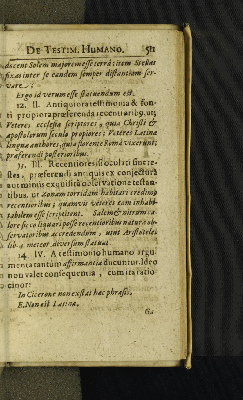 DE TESTIM. HUMANO. 511
docent Solem majorem esse terrâ: item Stellas
fixas inter se eandem semper distantiam ser-
vare:
Ergo id verum esse statuendum est.
12. II. Antiquiora testimonia & fon-
ti propiora præferenda recentioribus. ut;
Veteres ecclesiæ scriptores, quia Christi &
apostolorum seculo propiores: Veteres Latinæ
linguæ authores, quia florente Româ vixerunt;
præferendi posterioribus.
13. III. Recentiores si oculati sint te-
stes, præferendi antiquis ex conjectura
aut minus exquisitâ observatione testan-
tibus. ut Zonam torridam habitari credimus
recentioribus; quamvis veteres eam inhabi-
tabilem esse scripserint.
lib. 4. meteor. diversum statuat.
14. IV. A testimonio humano argu-
menta tantum affirmantia ducuntur. Ideo
non valet consequentia, cum ita ratio-
cinor:
In Cicerone non exstat hæc phrasis.
E. Non est Latina.